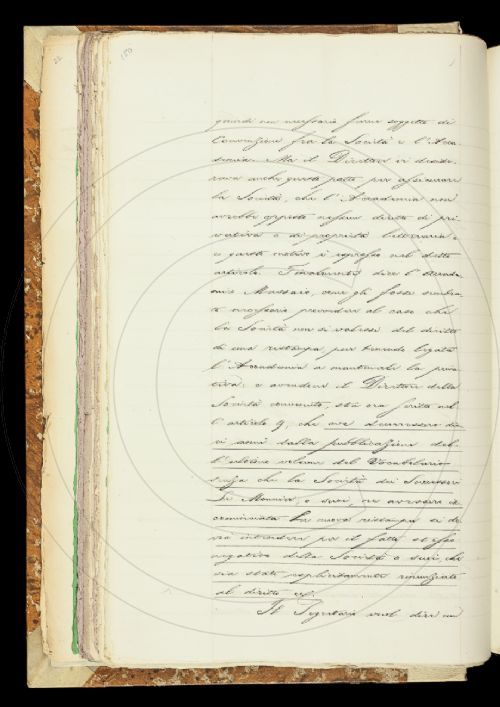 180
quindi non necessario farne soggetto di
Convenzione fra la Società e l'Acca-
demia. Ma il Direttore vi deside-
rava anche questo patto per assicurare
la Società, che l'Accademia non
avrebbe opposto nessun diritto di pri-
vativa o di proprietà letteraria e
questo motivo è espresso nel detto
articolo. Finalmente dice l'Accade-
mico Massaio, come gli fosse sembra-
to necessario prevedere al caso che
la Società non si valesse del diritto
di una ristampa pur tenendo legata
l'Accademia a mantenerle la priva-
tiva: e avendone il Direttore della
Società convenuto, sta ora scritto nel-
l'articolo 9, che ove decorressero die-
ci anni dalla pubblicazione del-
l'ultimo volume del Vocabolario
senza che la Società dei Successori
Le Monnier, o suoi, ne avessero in-
cominciata la nuova ristampa si do-
vrà intendere per il fatto stesso
negativo della Società o suoi, che
sia stato esplicitamente rinunziato
al diritto ec.
Il Segretario vuol dire un